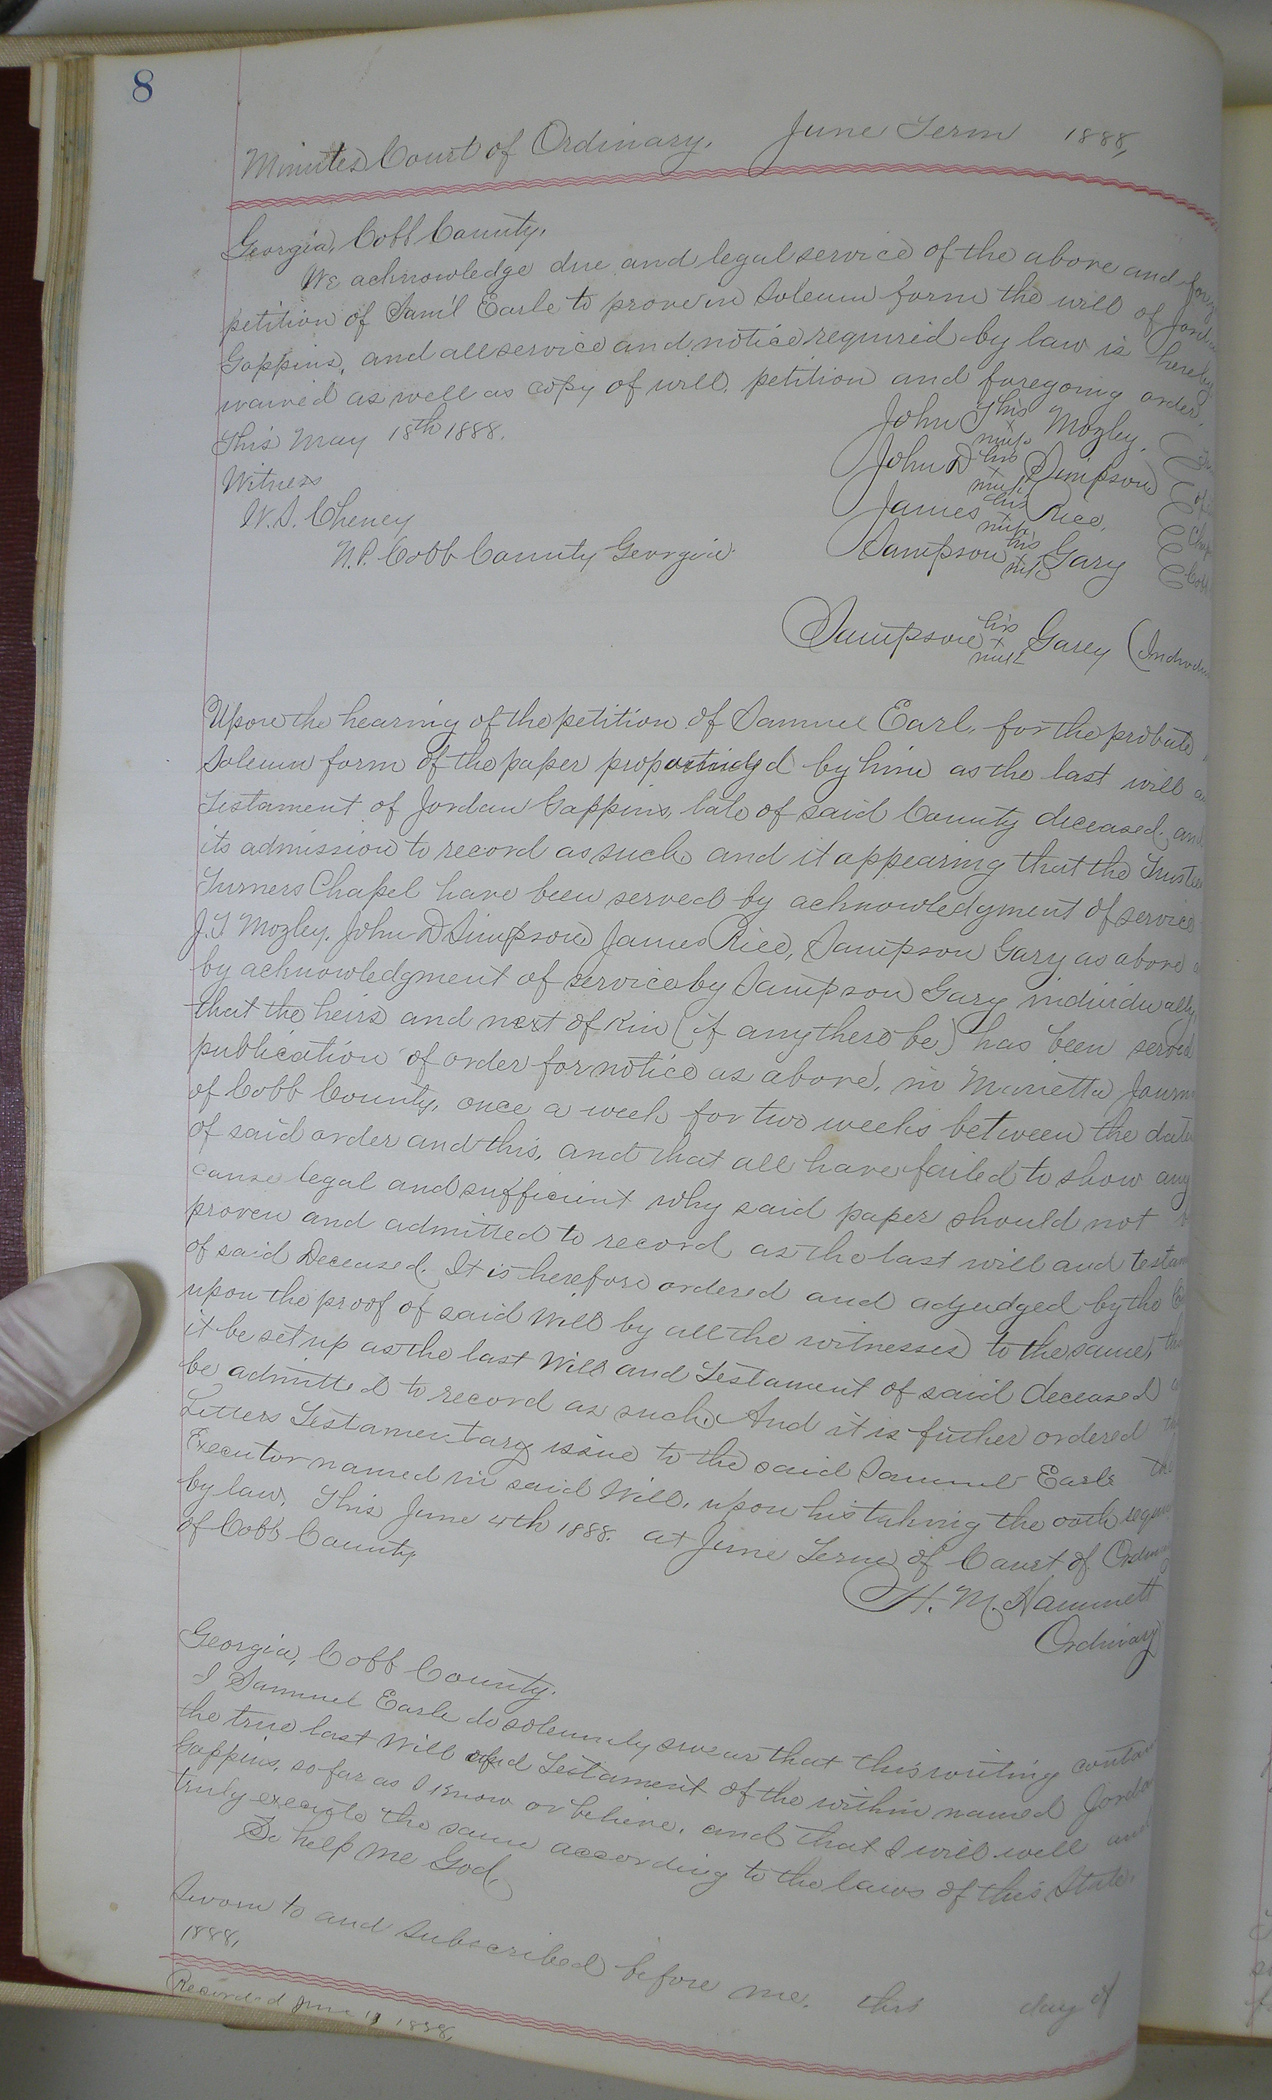 8
Minutes Court of Ordinary. June Term 1888,
Georgia, Cobb County,
We acknowledge due and legal service of the above and
petition of Sam'l Earle to prove in Solemn form the will of
Gappins, and all service and notice required by law is hereby
waived as well as copy of will, petition and foregoing order.
This May 18th 1888.
John T his x mark Mozley.
Witness
John D his x mark Simpson
W. S. Cheney
James his x mark Rice,
N.P. Cobb County Georgia
Sampson his x mark Gary
Sampson his x mark Garey
Upon the hearing of the petition of Samuel Earl, for the probate
Solemn form of the paper by him as the last will
Testament of Jordan Gappins, late of said County deceased, and
its admission to record as such and it appearing that the
Turners Chapel have been served by acknowledgment of service
J.T Mozley, John D Simpson James Rice, Sampson Gary as above
by acknowledgment of service by Sampson Gary individually
that the heirs and next of Kin (if any there be) has been served
publication of order for notice as above, in Marietta
of Cobb County, once a week for two weeks between the date
of said order and this, and that all have failed to show any
cause legal and sufficient why said paper should not
proven and admitted to record as the last will and
of said Deceased. It is herefore ordered and adjudged by the
upon the proof of said Will by all the witnesses to the same,
it be set up as the last Will and Testament of said deceased
be admitted to record as such. And it is futher ordered
Letters Testamentary issue to the said Samuel Earle the
Executor named in said Will, upon his taking the oath
by law, This June 4th 1888. at June Term of Court of
of Cobb County
H. M. Hammett
Ordinary
Georgia, Cobb County.
I Samuel Earle do solemnly swear that this writing
the true last Will and Testament of the within named
Gappins, so far as I know or believe, and that I will well and
truly execute the same according to the laws of this State.
So help me God,
Sworn to and Subscribed before me, this day of
1888,
Recorded June 1888,